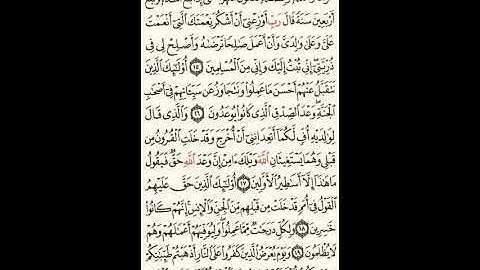 أَرْبَعِينَ سَنَةً قَالَ رَبِّ أَوْزِعْنِىٓ أَنْ أَشْكُرَ نِعْمَتَكَ ٱلَّتِىٓ أَنْعَمْتَ
عَلَىَّ وَعَلَىٰ وَٰلِدَىَّ وَأَنْ أَعْمَلَ صَٰلِحًا تَرْضَىٰهُ وَأَصْلِحْ لِى فِى
ذُرِّيَّتِىٓ ۖ إِنِّى تُبْتُ إِلَيْكَ وَإِنِّى مِنَ ٱلْمُسْلِمِينَ ١٥ أُو۟لَٰٓئِكَ ٱلَّذِينَ
نَتَقَبَّلُ عَنْهُمْ أَحْسَنَ مَا عَمِلُوا۟ وَنَتَجَاوَزُ عَن سَيِّـَٔاتِهِمْ فِىٓ أَصْحَٰبِ
ٱلْجَنَّةِ ۖ وَعْدَ ٱلصِّدْقِ ٱلَّذِى كَانُوا۟ يُوعَدُونَ ١٦ وَٱلَّذِى قَالَ
لِوَٰلِدَيْهِ أُفٍّ لَّكُمَآ أَتَعِدَانِنِىٓ أَنْ أُخْرَجَ وَقَدْ خَلَتِ ٱلْقُرُونُ مِن
قَبْلِى وَهُمَا يَسْتَغِيثَانِ ٱللَّهَ وَيْلَكَ ءَامِنْ إِنَّ وَعْدَ ٱللَّهِ حَقٌّ فَيَقُولُ
مَا هَٰذَآ إِلَّآ أَسَٰطِيرُ ٱلْأَوَّلِينَ ١٧ أُو۟لَٰٓئِكَ ٱلَّذِينَ حَقَّ عَلَيْهِمُ
ٱلْقَوْلُ فِىٓ أُمَمٍ قَدْ خَلَتْ مِن قَبْلِهِم مِّنَ ٱلْجِنِّ وَٱلْإِنسِ ۖ إِنَّهُمْ كَانُوا۟
خَٰسِرِينَ ١٨ وَلِكُلٍّ دَرَجَٰتٌ مِّمَّا عَمِلُوا۟ ۖ وَلِيُوَفِّيَهُمْ أَعْمَٰلَهُمْ وَهُمْ
لَا يُظْلَمُونَ ١٩ وَيَوْمَ يُعْرَضُ ٱلَّذِينَ كَفَرُوا۟ عَلَى ٱلنَّارِ أَذْهَبْتُمْ طَيِّبَٰتِكُمْ